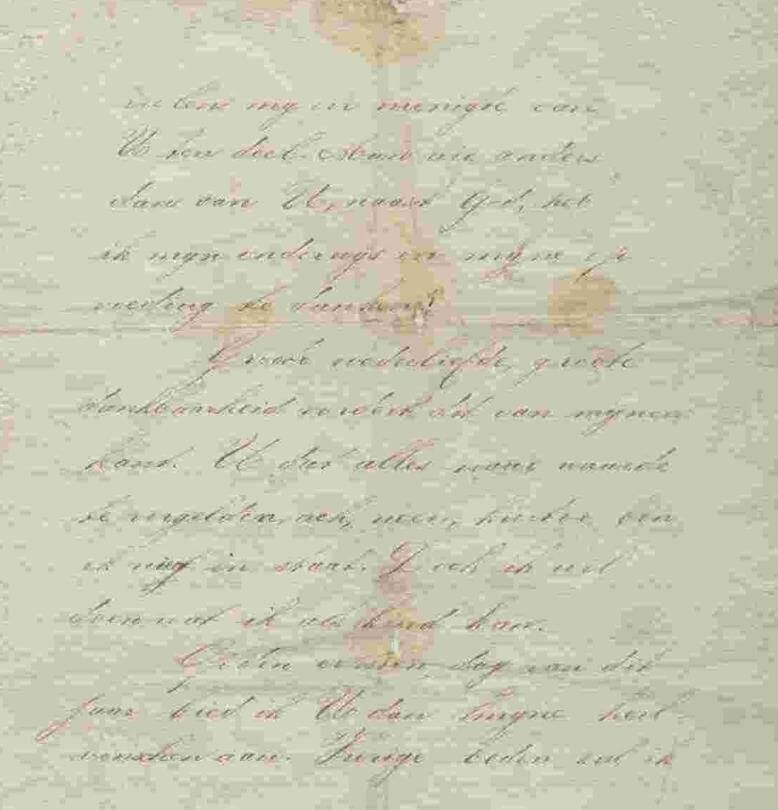 mij in menigte van
U ten deel. Aan wie anders
dan van U, naast God, heb
ik mijn onderwijs en mijne op
voeding te danken?
Groote wederliefde, groote
dankbaarheid vordert dit van mijnen
kant. U dat alles naar waarde
te vergelden, ach, neen, hiertoe ben
ik nog in staat. Doch ik wil
doen wat ik als kind kan.
Op den eersten dag van dit
jaar bied ik U dan mijne heil
wenschen aan. Vurige beden zal ik